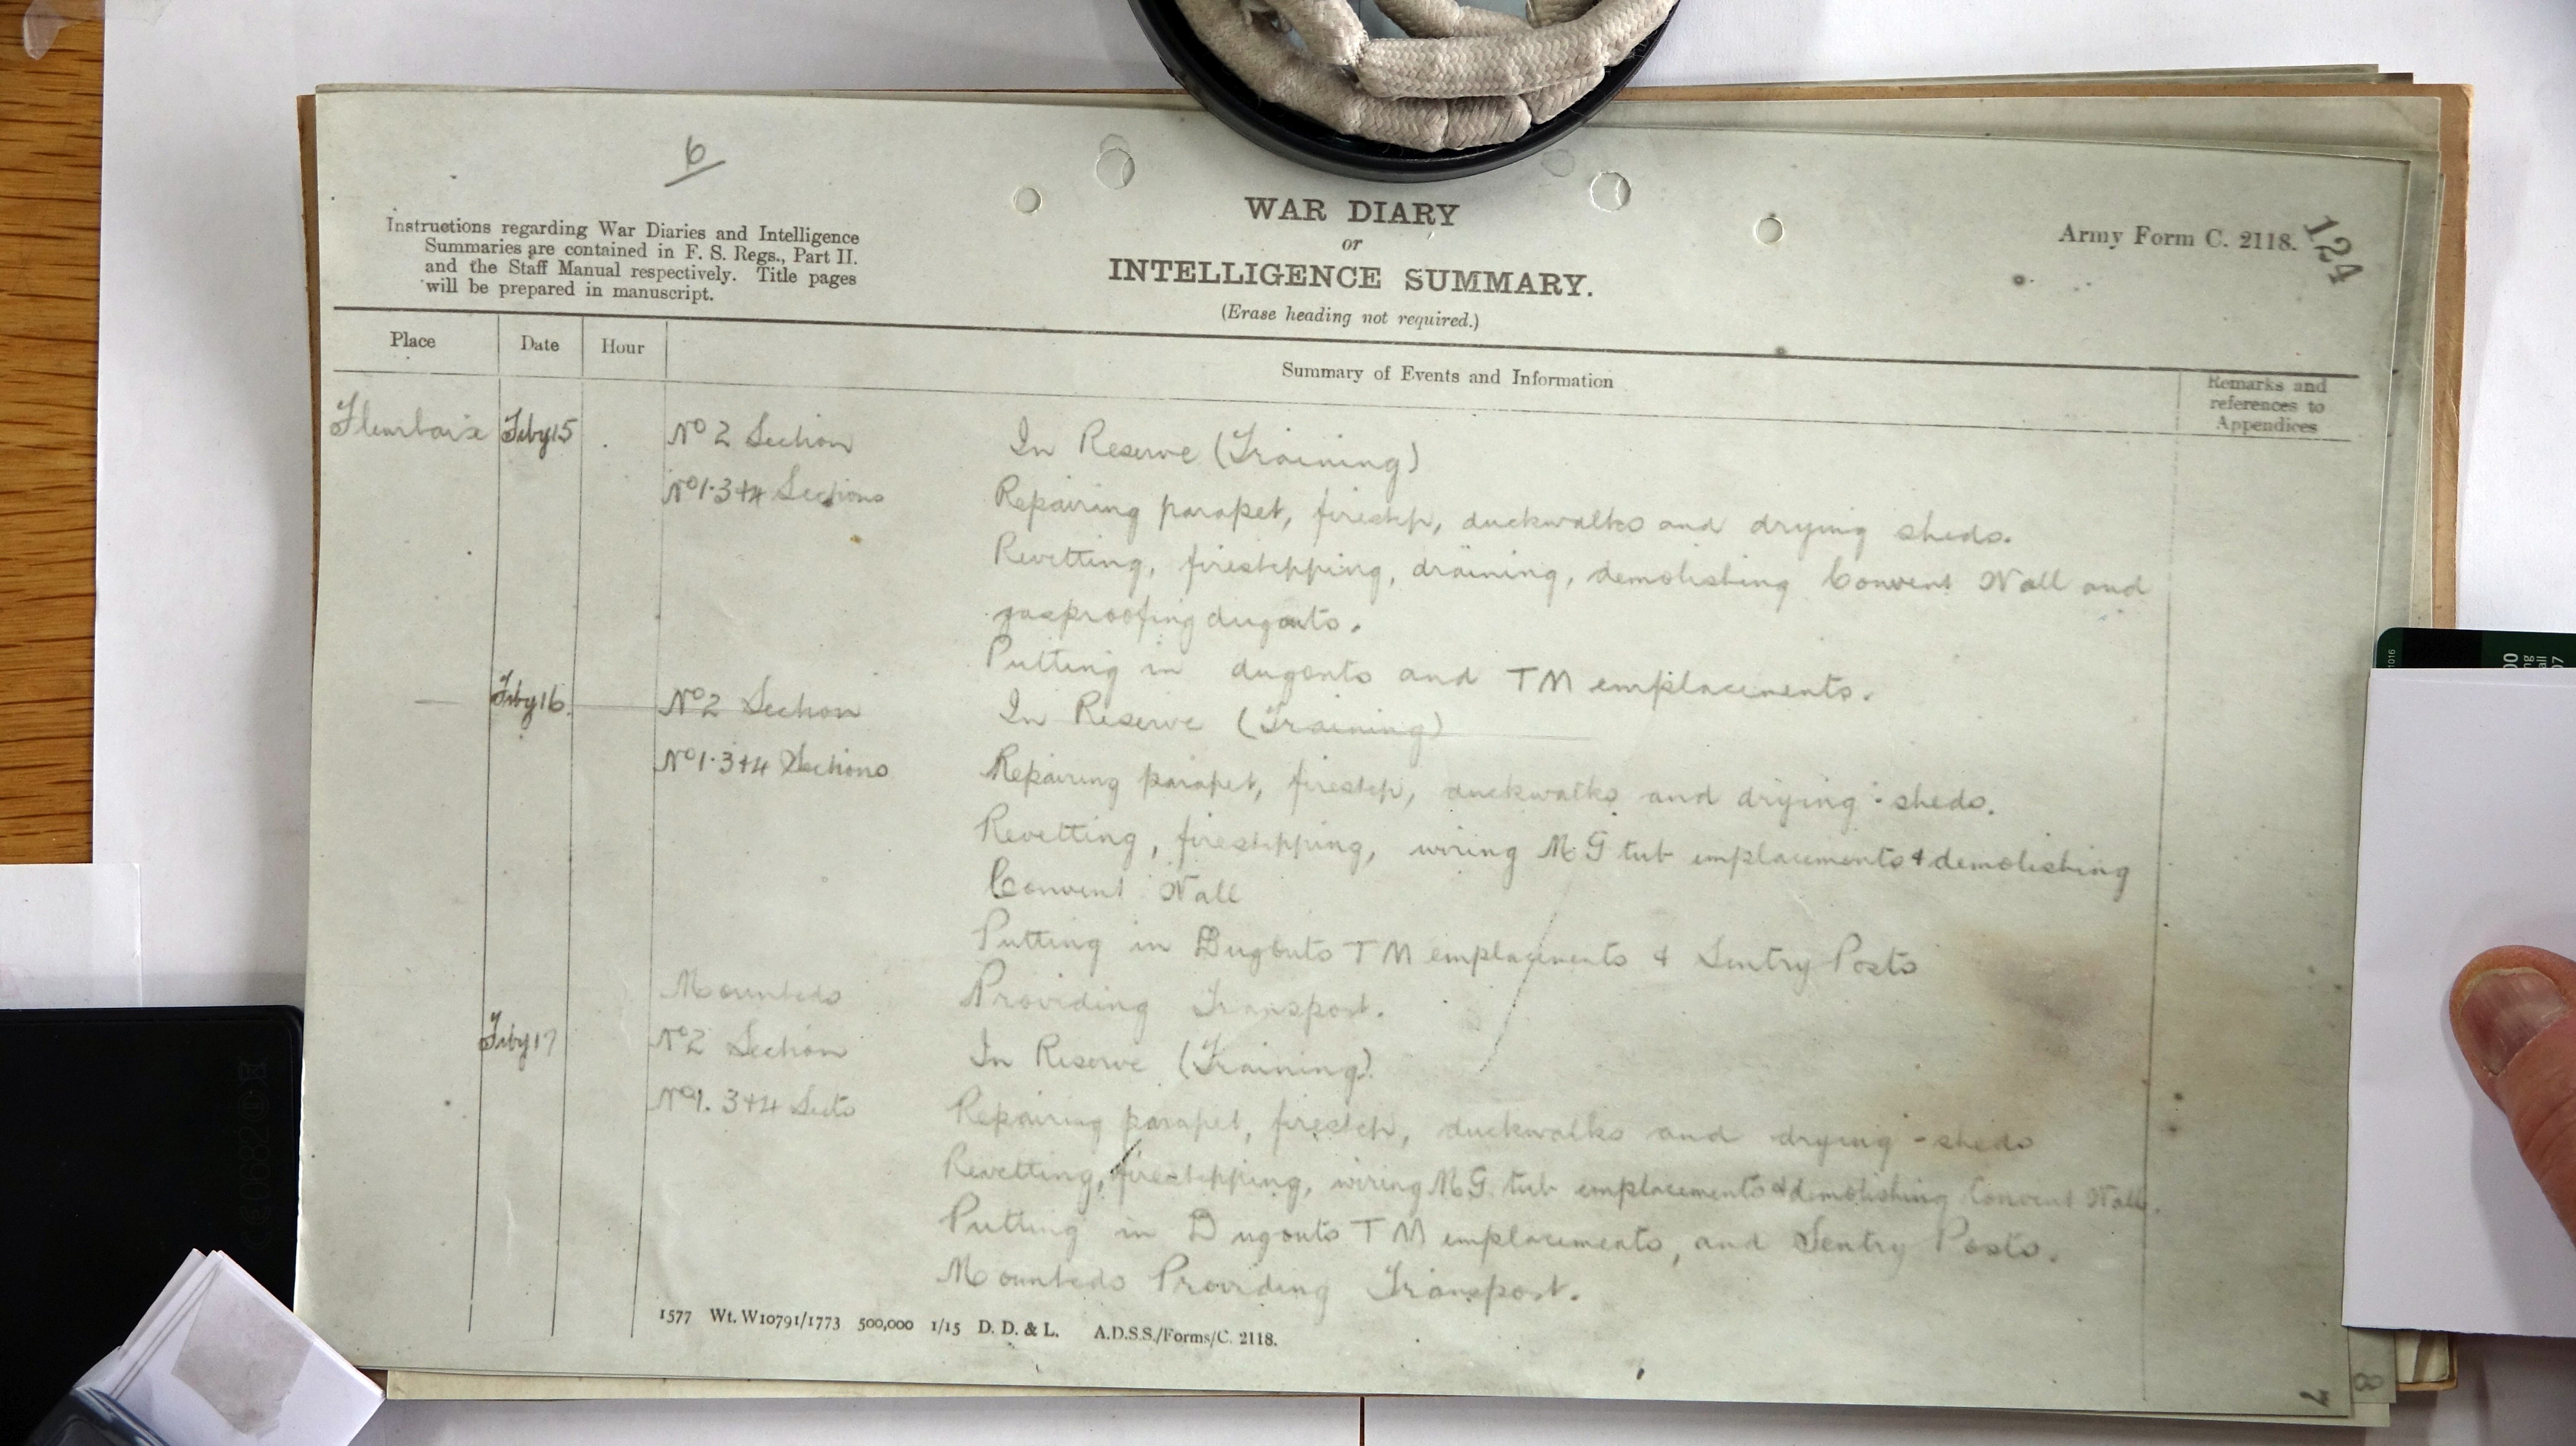 6
Instructions regarding War Diaries and Intelligence
Summaries are contained in F. S. Regs., Part II.
and the Staff Manual respectively. Title pages
will be prepared in manuscript.
WAR DIARY
or
INTELLIGENCE SUMMARY.
(Erase heading not required.)
Army Form C. 2118.
124
Place Date Hour Summary of Events and Information Remarks and
references to
Appendices
Fleurbaix Feby 15 No 2 Section In Reserve (Training)
No 1.3+4 Sections Repairing parapet, firestep, duckwalks and drying sheds.
Revetting, firestepping, draining, demolishing Convent Wall and
gasproofing dugouts.
Putting in dugouts and TM emplacements.
— Feby 16. No 2 Section In Reserve (Training)
No 1.3+4 Sections Repairing parapet, firestep, duckwalks and drying-sheds.
Revetting, firestepping, wiring MG tub emplacements & demolishing
Convent Wall
Putting in Dugouts TM emplacements & Sentry Posts
Mounteds Providing Transport.
Feby 17 No 2 Section In Reserve (Training).
No 1. 3+4 Sects Repairing parapet, firestep, duckwalks and drying-sheds
Revetting, firestepping, wiring MG. tub emplacements & demolishing Convent Wall.
Putting in Dugouts TM emplacements, and Sentry Posts.
Mounteds Providing Transport.
1577 Wt. W10791/1773 500,000 1/15 D. D. & L. A.D.S.S./Forms/C. 2118.
7
8
CE0682